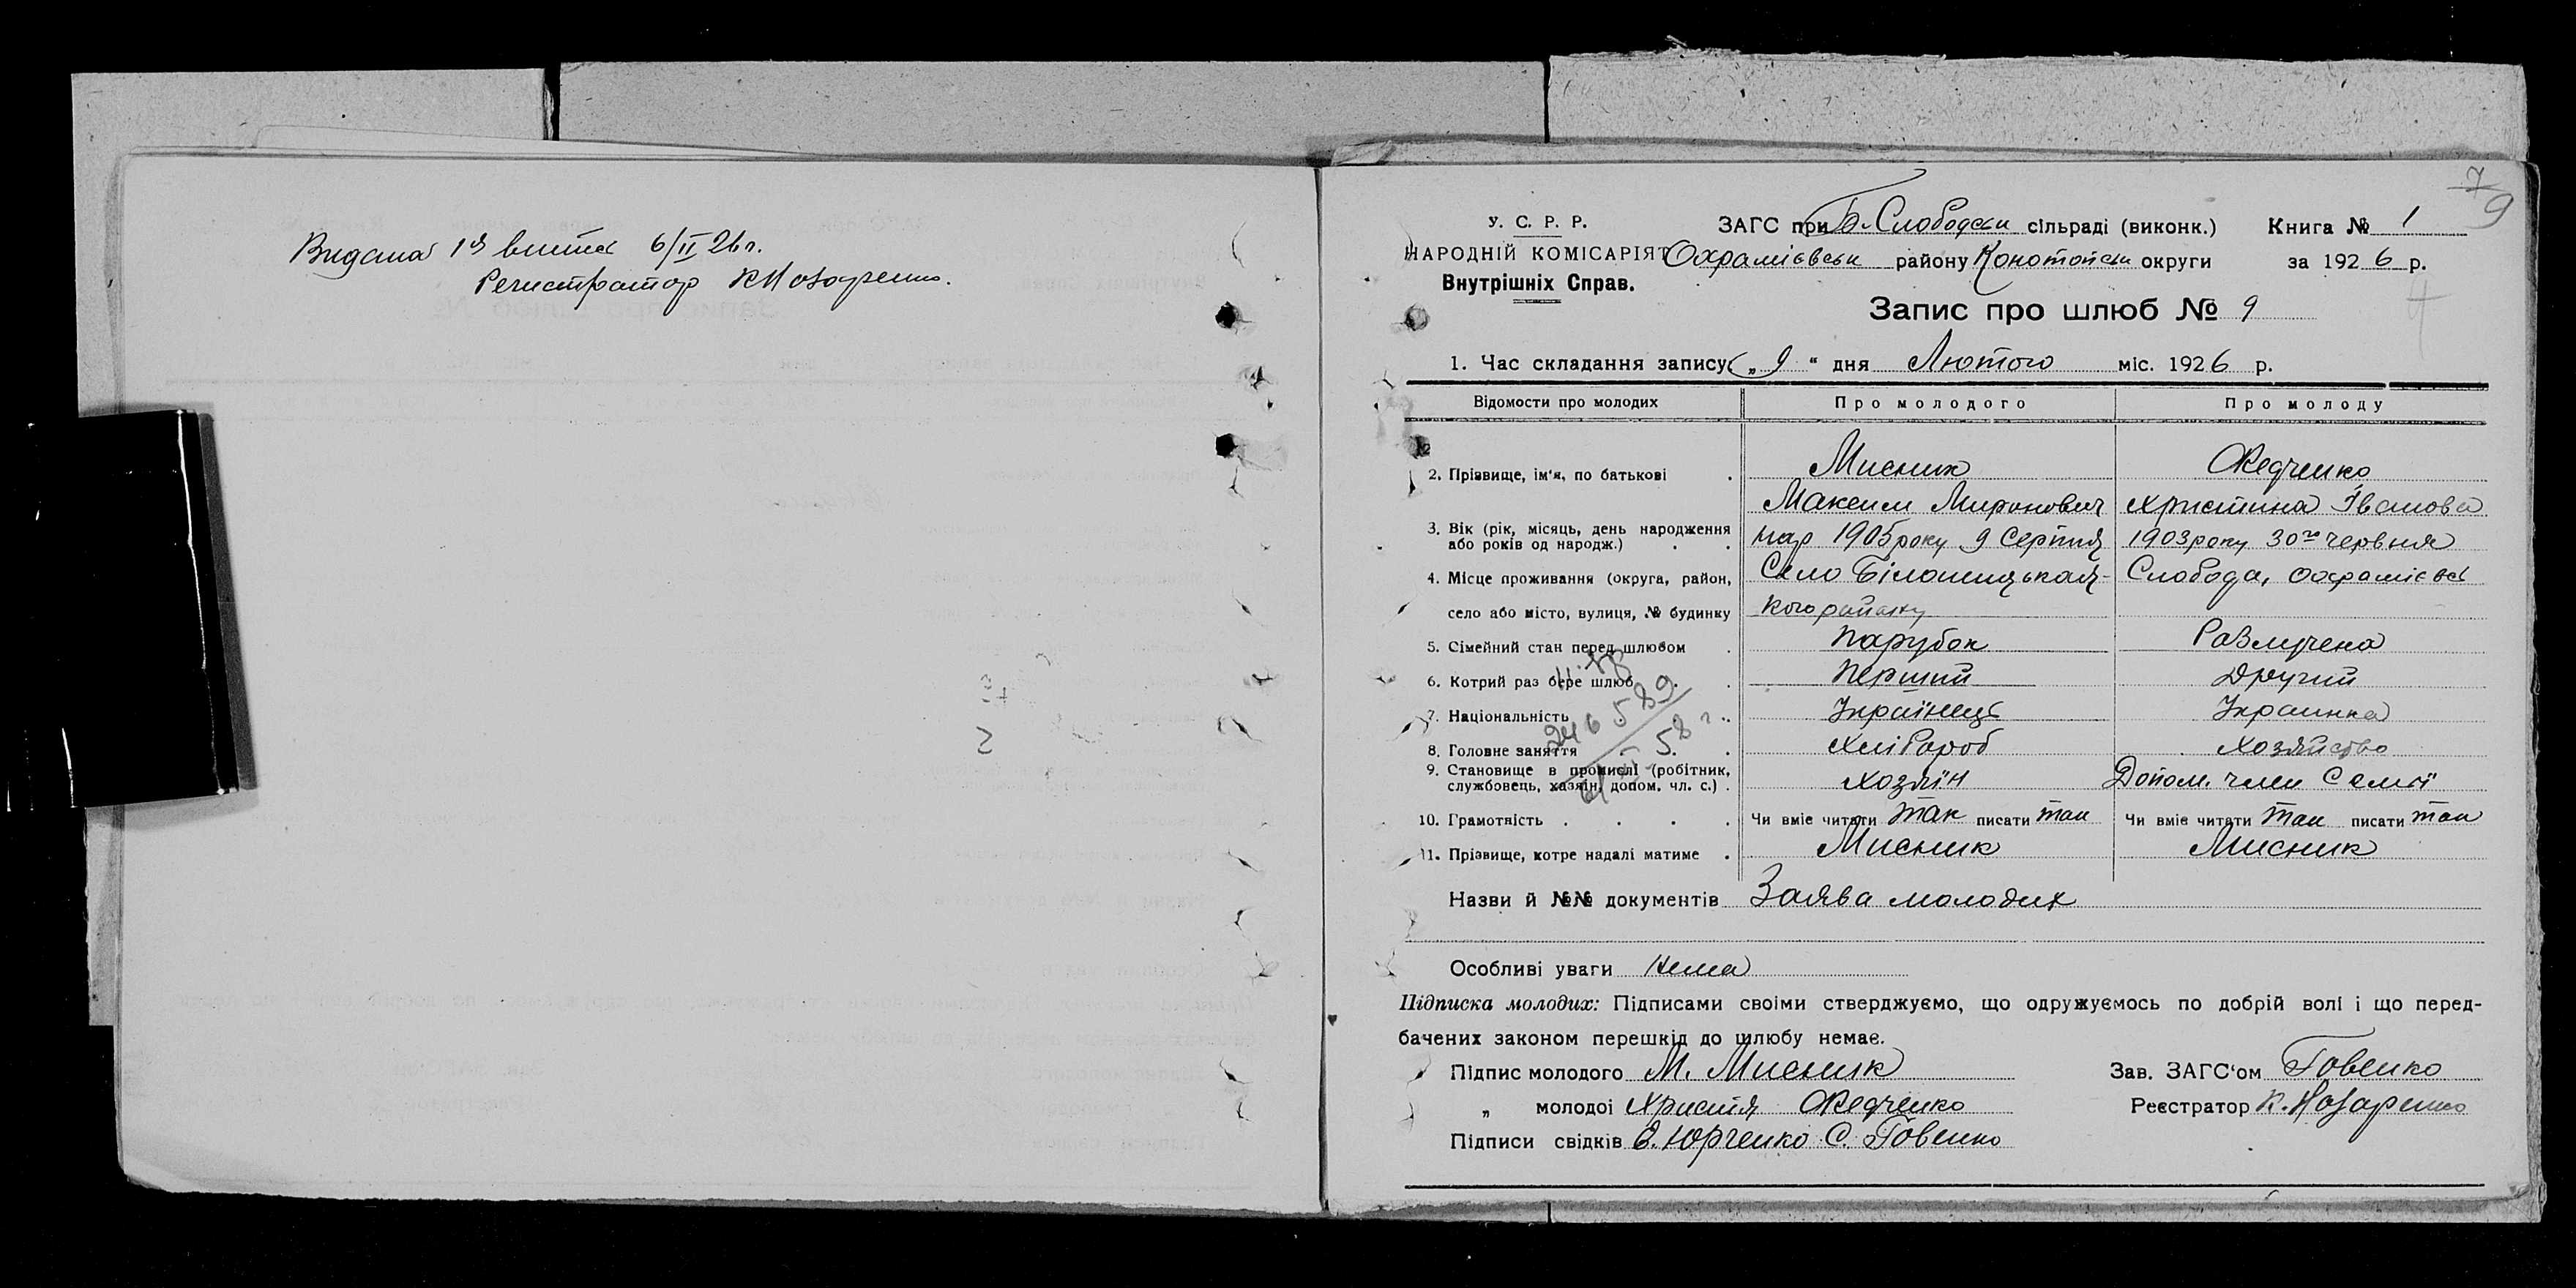 Видана 1й витяг 6/II 26 г.
Регистратор К Назаренко.
7
9
У. С. Р. Р.
НАРОДНІЙ КОМІСАРІЯТ
Внутрішніх Справ.
ЗАГС при Б-Слободськ сільраді (виконк.) Книга № 1
Охрамієвськ району Конотопськ округи за 1926 р.
Запис про шлюб № 9
4
1. Час складання запису „9“ дня Лютого міс. 1926 р.
Відомости про молодих Про молодого Про молоду
2. Прізвище, ім'я, по батькові Мисник Федченко
Максим Миронович Христина Іванова
3. Вік (рік, місяць, день народження або років од народж.) нар 1905 року 9 Серпня 1903 року 30го червня
4. Місце проживання (округа, район, Село Білошицькая- Слобода, Охраміевс
село або місто, вулиця, № будинку кого району
5. Сімейний стан перед шлюбом Парубок Разлучена
6. Котрий раз бере шлюб Перший Другий
7. Національність Українець Украинка
8. Головне заняття Хлібороб Хозяйство
9. Становище в промислі (робітник, службовець, хазяїн, допом. чл. с.) Хозяїн Допом. член Семьї
10. Грамотність Чи вміє читати так писати так Чи вміє читати так писати так
11. Прізвище, котре надалі матиме Мисник Мисник
Назви й №№ документів Заява молодих
Особливі уваги Нема
Підписка молодих: Підписами своїми стверджуємо, що одружуємось по добрій волі і що перед-
бачених законом перешкід до шлюбу немає.
Підпис молодого М. Мисник Зав. ЗАГС'ом Говенко
„ молодої Христя Федченко Реєстратор К. Назаренко
Підписи свідків Юрченко С. Говенко